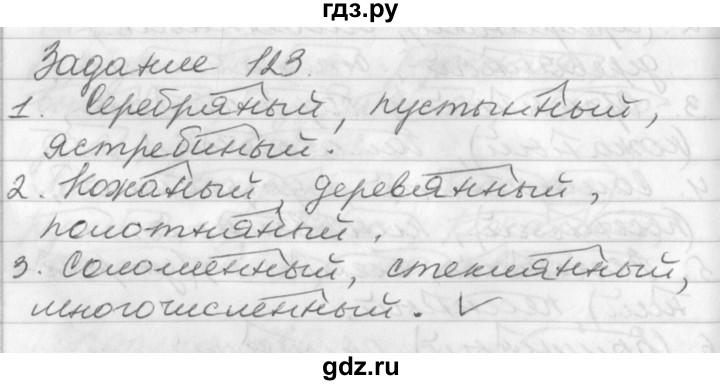 гдз.ру
Задание 123.
1. Серебряный, пустынный,
ястребиный.
2. Кожаный, деревянный,
полотняный.
3. Соломенный, стеклянный,
многочисленный. ✓
gdz.ru